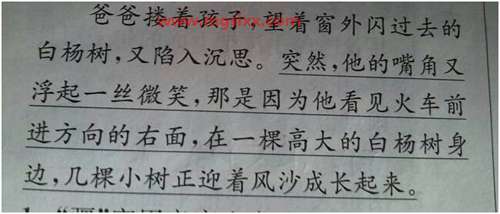 爸爸搂着孩子,望着窗外闪过去的
白杨树,又陷入沉思。突然,他的嘴角又
浮起一丝微笑,那是因为他看见火车前
进方向的右面,在一棵高大的白杨树身
边,几棵小树正迎着风沙成长起来。